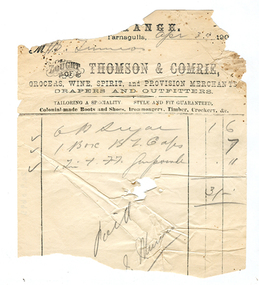 ANGE,
Tarnagulla, Apr 3rd 190
THOMSON & COMRIE,
GROCERS, WINE, SPIRIT, and PROVISION MERCHANT
DRAPERS AND OUTFITTERS.
TAILORING A SPECIALITY STYLE AND FIT GUARANTEED.
Colonial-made Boots and Shoes, Ironmongery, Timber, Crockery, &c.
6 lb Sugar 1 6
1 Box 7
1 Tin
Paid